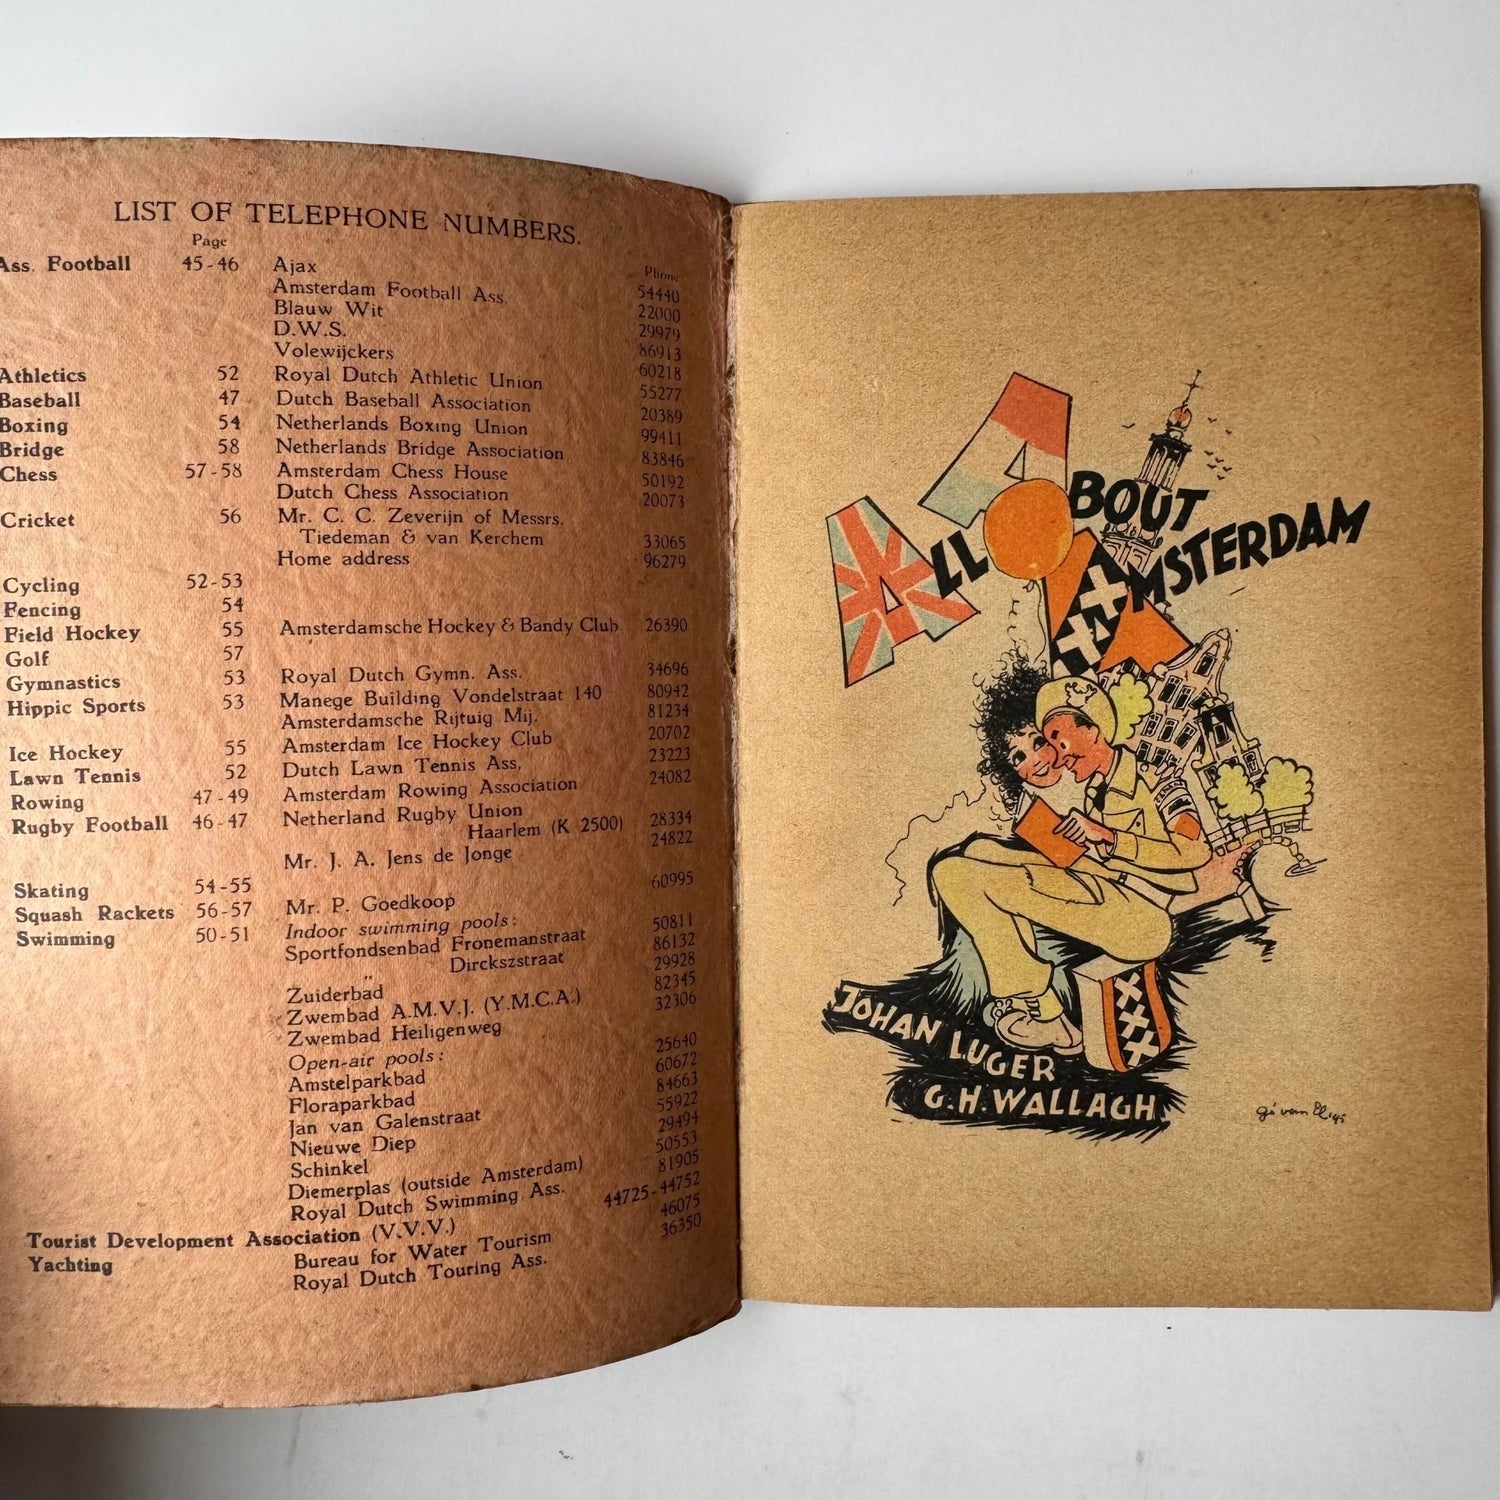 LIST OF TELEPHONE NUMBERS.
Page
Phone
Ass. Football 45-46 Ajax 54440
Amsterdam Football Ass. 22000
Blauw Wit 29979
D.W.S. 86913
Volewijckers 60218
Athletics 52 Royal Dutch Athletic Union 55277
Baseball 47 Dutch Baseball Association 20389
Boxing 54 Netherlands Boxing Union 99411
Bridge 58 Netherlands Bridge Association 83846
Chess 57-58 Amsterdam Chess House 50192
Dutch Chess Association 20073
Cricket 56 Mr. C. C. Zeverijn of Messrs.
Tiedeman & van Kerchem 33065
Home address 96279
Cycling 52-53
Fencing 54
Field Hockey 55 Amsterdamsche Hockey & Bandy Club 26390
Golf 57
Gymnastics 53 Royal Dutch Gymn. Ass. 34696
Hippic Sports 53 Manege Building Vondelstraat 140 80942
Amsterdamsche Rijtuig Mij. 81234
Ice Hockey 55 Amsterdam Ice Hockey Club 20702
Lawn Tennis 52 Dutch Lawn Tennis Ass, 23223
Rowing 47-49 Amsterdam Rowing Association 24082
Rugby Football 46-47 Netherland Rugby Union
Haarlem (K 2500) 28334
Mr. J. A. Jens de Jonge 24822
Skating 54-55
Squash Rackets 56-57 Mr. P. Goedkoop 60995
Swimming 50-51 Indoor swimming pools:
Sportfondsenbad Fronemanstraat 50811
" Dirckszstraat 86132
Zuiderbad 29928
Zwembad A.M.V.J. (Y.M.C.A.) 82345
Zwembad Heiligenweg 32306
Open-air pools:
Amstelparkbad 25640
Floraparkbad 60672
Jan van Galenstraat 84663
Nieuwe Diep 55922
Schinkel 29494
Diemerplas (outside Amsterdam) 50553
Royal Dutch Swimming Ass. 81905
Tourist Development Association (V.V.V.) 44725-44752
Yachting Bureau for Water Tourism 46075
Royal Dutch Touring Ass. 36350
ALL
ABOUT
AMSTERDAM
JOHAN LUGER
G.H. WALLAGH